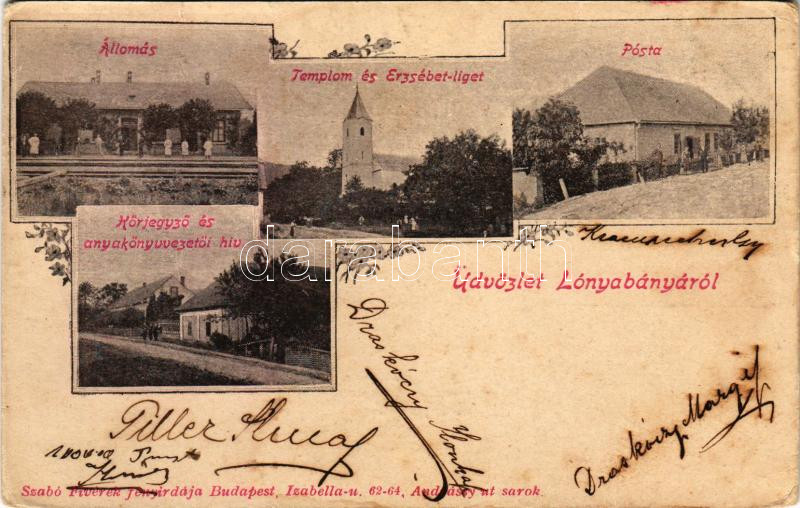 Állomás
Templom és Erzsébet-liget
Pósta
Körjegyző és
anyakönyvvezetői hiv.
darabanth
Üdvözlet Lónyabányáról
Draskóczy Ilonka
Draskóczy Margit
Piller
Szabó Fivérek fényirdája Budapest, Izabella-u. 62-64, Andrássy út sarok.